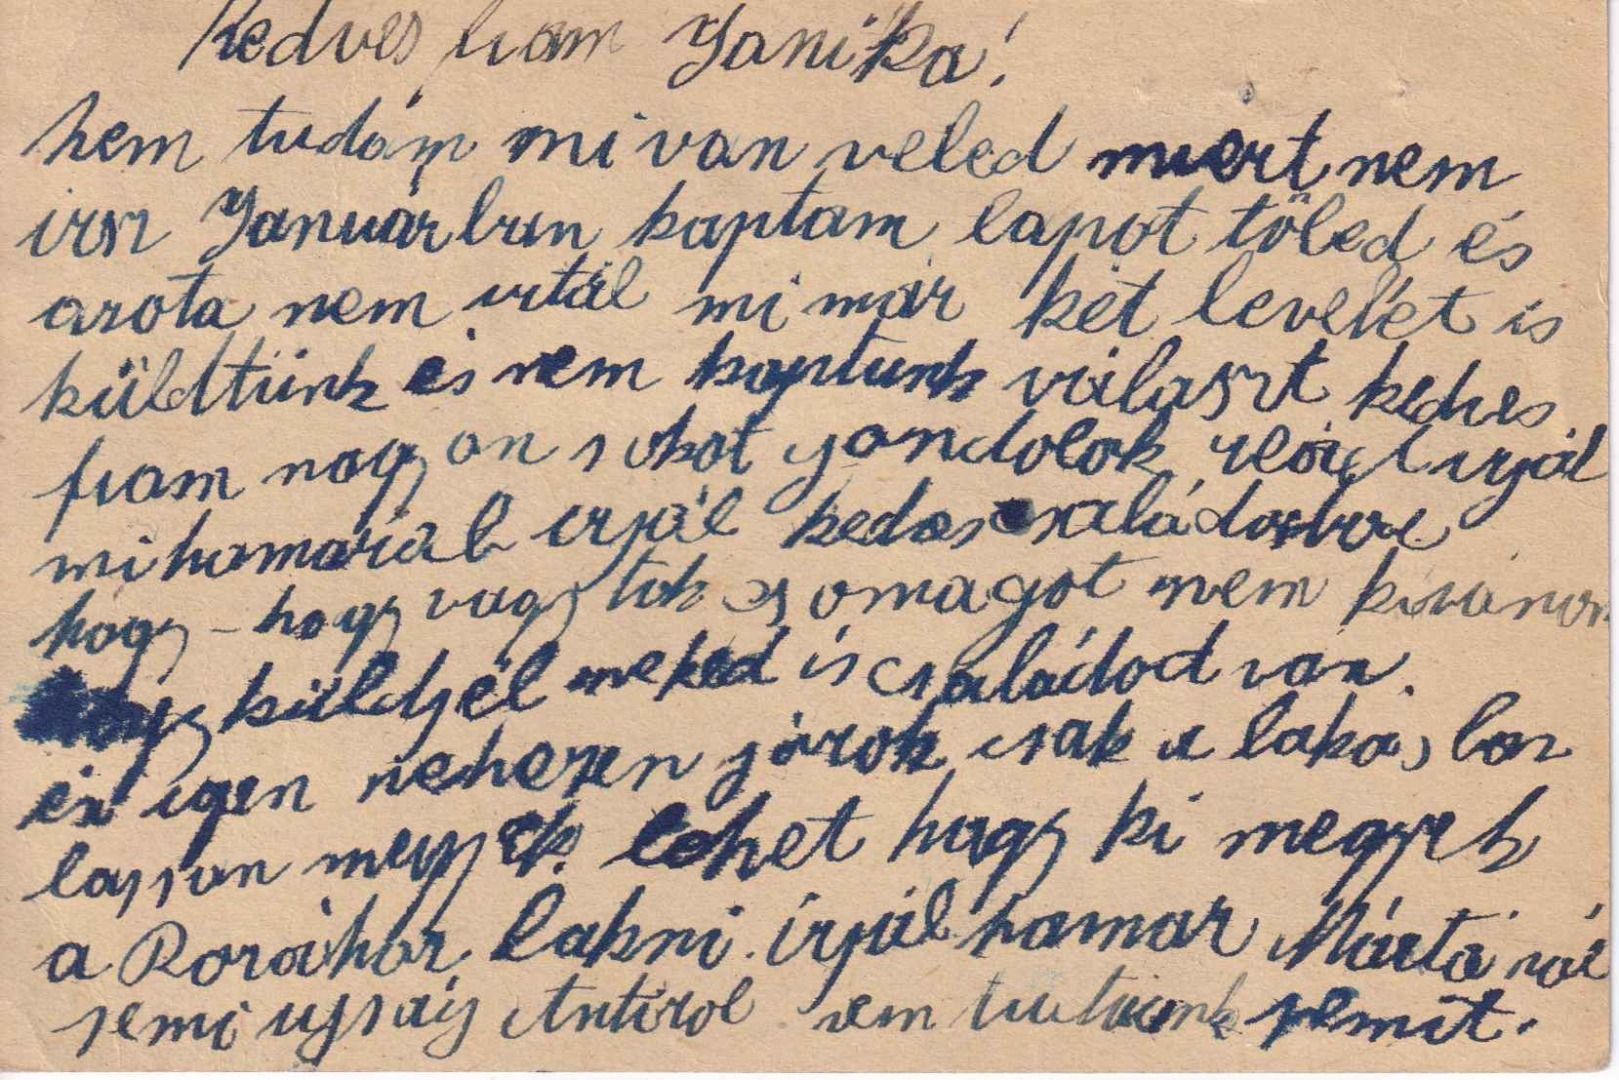 Kedves fiam Janika!
nem tudom mi van veled miért nem
irsz Januárban kaptam lapot töled és
azota nem irtál mi már két levelet is
küldtünk és nem kaptunk választ kedves
fiam nagyon sokat gondolok reád irjál
mihamaráb irjál kedves családodrol
hogy-hogy vagytok csomagot nem kivánom
hogy küldjél neked is családod van.
én igen nehezen járok csak a lakásban
lassan megyek. lehet hogy ki megyek
a Rozához lakni. írjál hamar Mártáról
semi ujság Antirol sem tudunk semit.